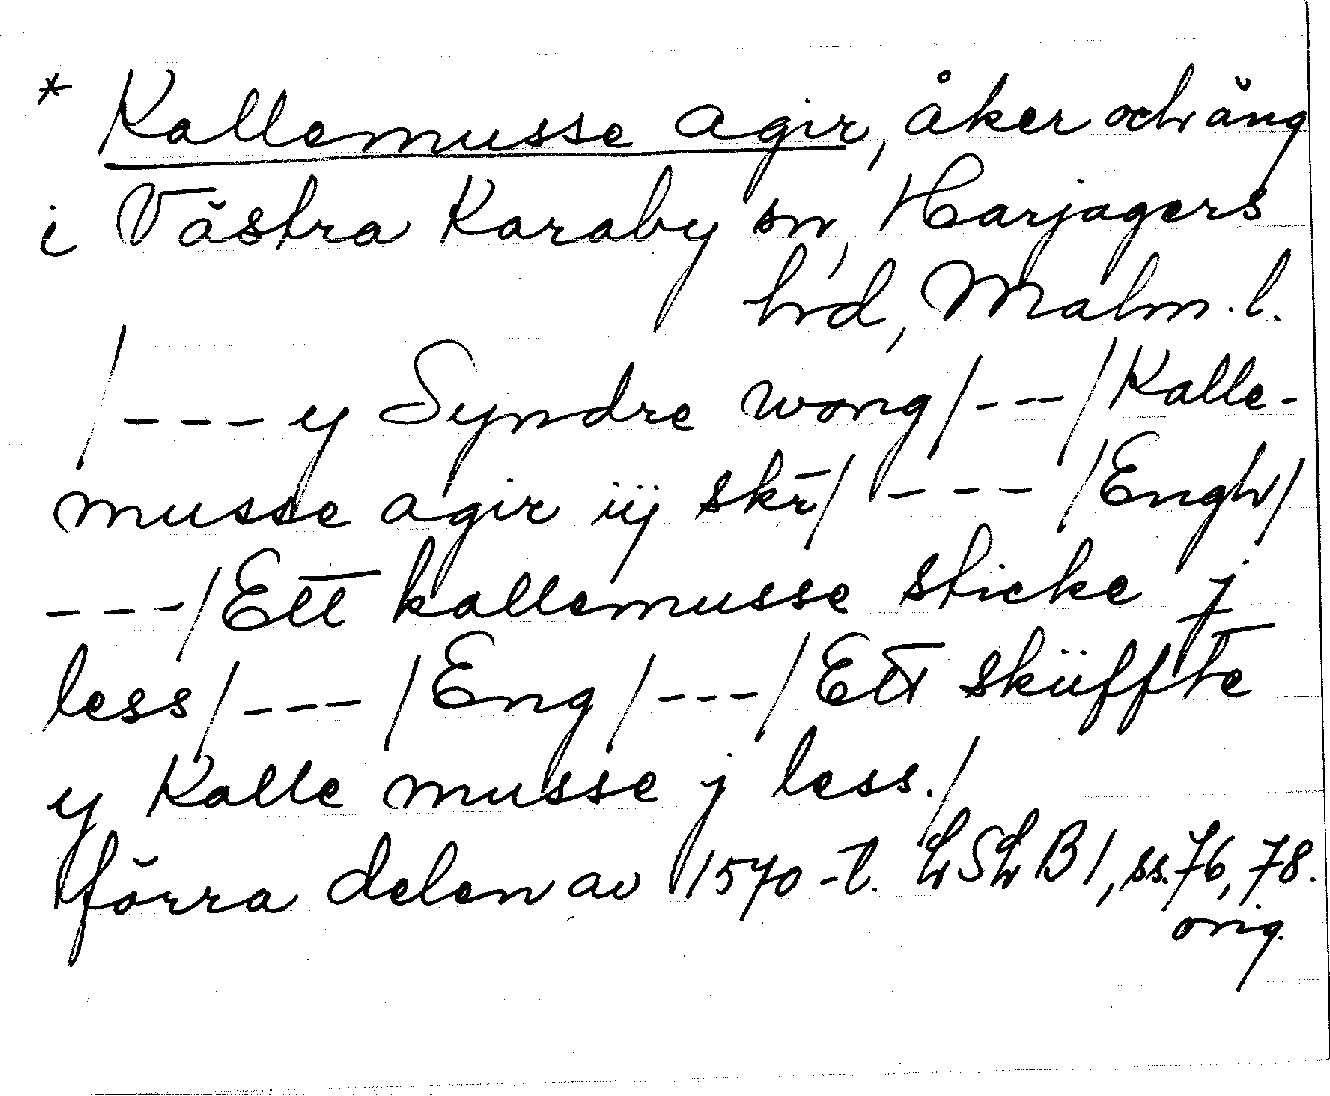 * Kallemusse agir, åker och äng
i Västra Karaby sn, Harjagers
hd, Malm. l.
/---y Syndre wong/---/Kalle-
musse agir iij skr̄/ --- /Engh/
---/Ett kallemusse sticke j
less/---/Eng/---/Ett sküffte
y Kalle musse j less./
förra delen av 1570-t. LSLB1, ss. 76, 78.
orig.